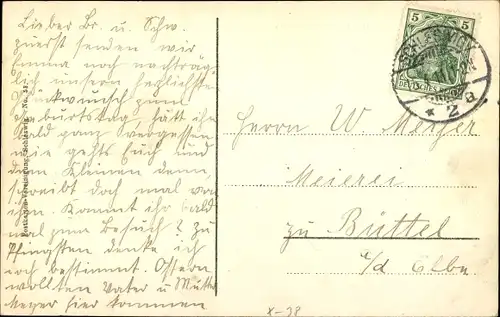 Lieber Br. u. Schw.
zuerst senden wir
Emma noch nachträg-
lich unsern herzlichsten
Glückwunsch zum
Geburtstag, hätt ihn
bald ganz vergessen
wie gehts Euch und
dem Kleinen denn,
schreibt doch mal was
von ihm. Kommt ihr bald
mal zum Besuch? Zu
Pfingsten denke ich
doch bestimmt. Ostern
wollten Vater u Mutter
Meyer hier kommen
5 5
DEUTSCHES REICH
SCHLESWIG
* 2 a
Herrn W. Meyer
Meierei
zu Büttel
a/d Elbe
X-38